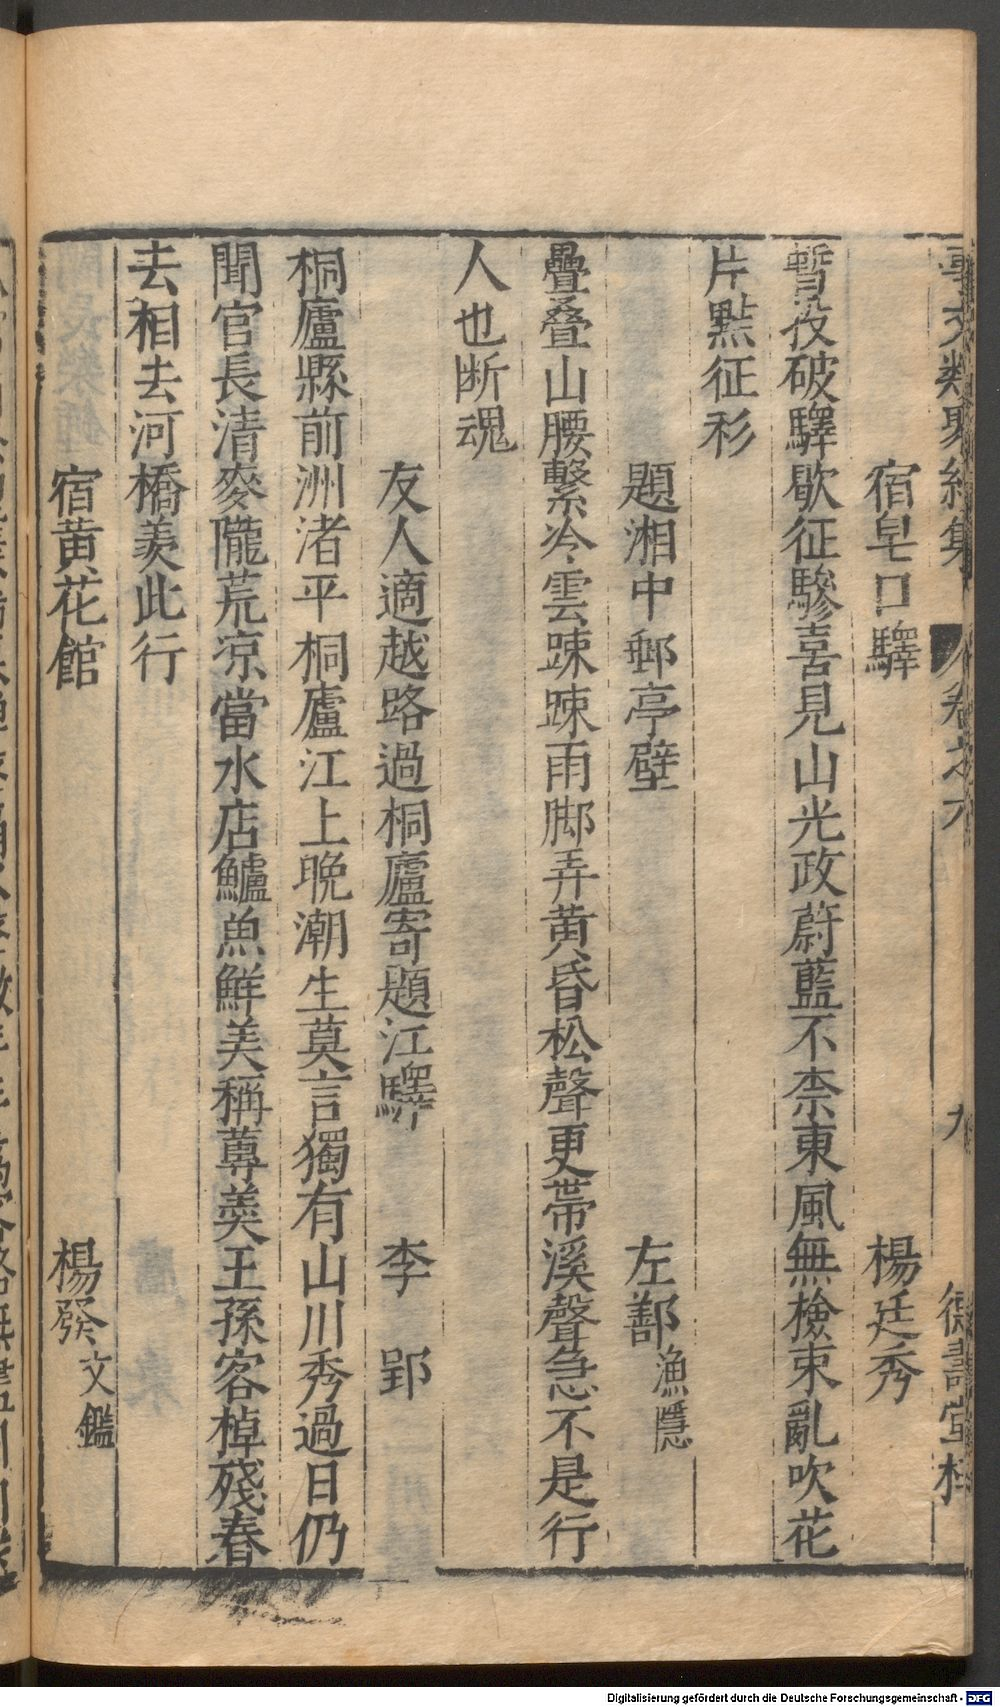 宿皂口驛　楊廷秀
暫投破驛歇征驂喜見山光政蔚藍不柰東風無檢束亂吹花
片點征衫
題湘中郵亭壁　左鄯漁隱
疊叠山腰繫冷雲踈踈雨脚弄黄昏松聲更帯溪聲急不是行
人也断魂
友人適越路過桐廬寄題江驛　李郢
桐廬縣前洲渚平桐廬江上晚潮生莫言獨有山川秀過日仍
聞官長清麥隴荒凉當水店鱸魚鮮美稱蓴羮王孫客棹殘春
去相去河橋羨此行
宿黄花館　楊發文鑑
Digitalisierung gefördert durch die Deutsche Forschungsgemeinschaft - DFG